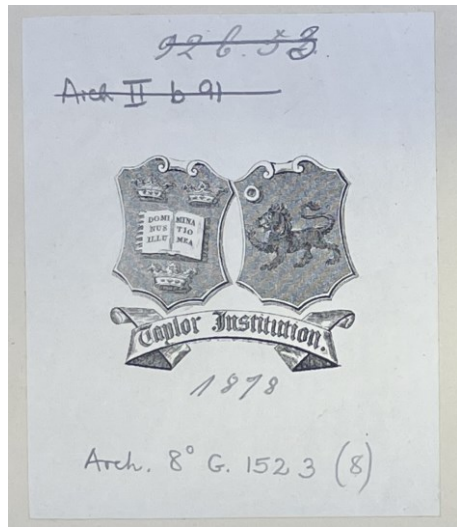 92 b. 53.
Arch II b 91
DOMI MINA
NUS TIO
ILLU MEA
Taylor Institution.
1878
Arch. 8° G. 1523 (8)